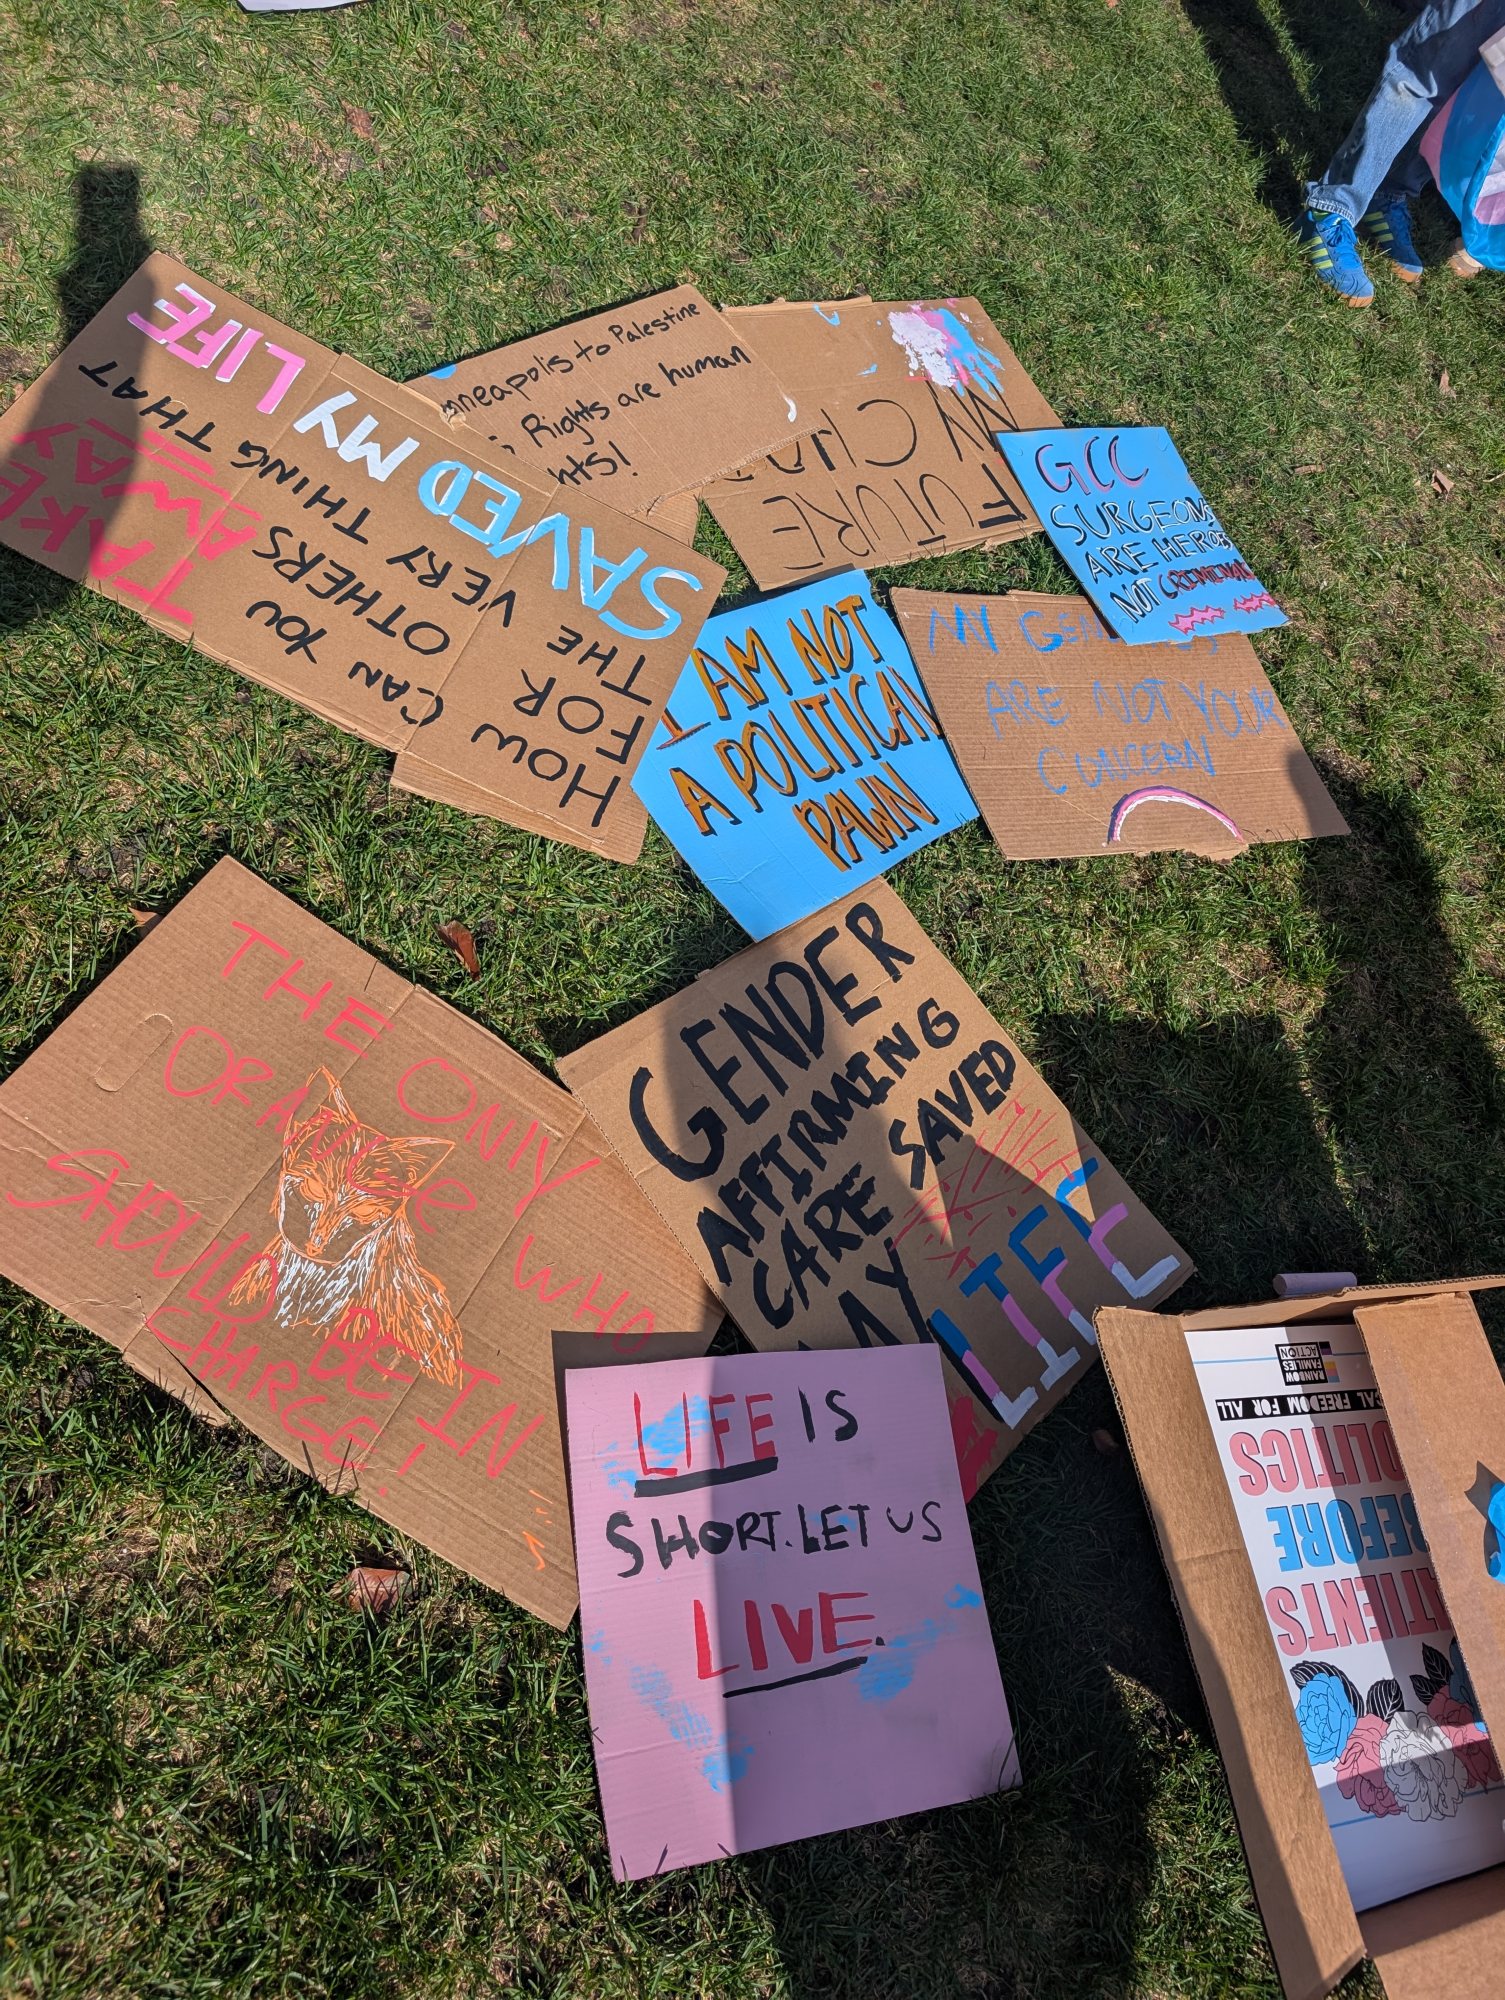 HOW CAN YOU
FOR OTHERS
THE VERY THING THAT
SAVED MY LIFE
TAKE
AWAY
Minneapolis to Palestine
Rights are human
MY
FUTURE
GCC
SURGEONS
ARE HEROES
NOT CRIMINALS
I AM NOT
A POLITICAL
PAWN
MY
ARE NOT YOUR
CONCERN
THE ONLY
WHO
SHOULD BE IN
CHARGE!
GENDER
AFFIRMING
CARE SAVED
MY
LIFE
LIFE IS
SHORT. LET US
LIVE.
RAINBOW
FAMILIES
ACTION
FREEDOM FOR ALL